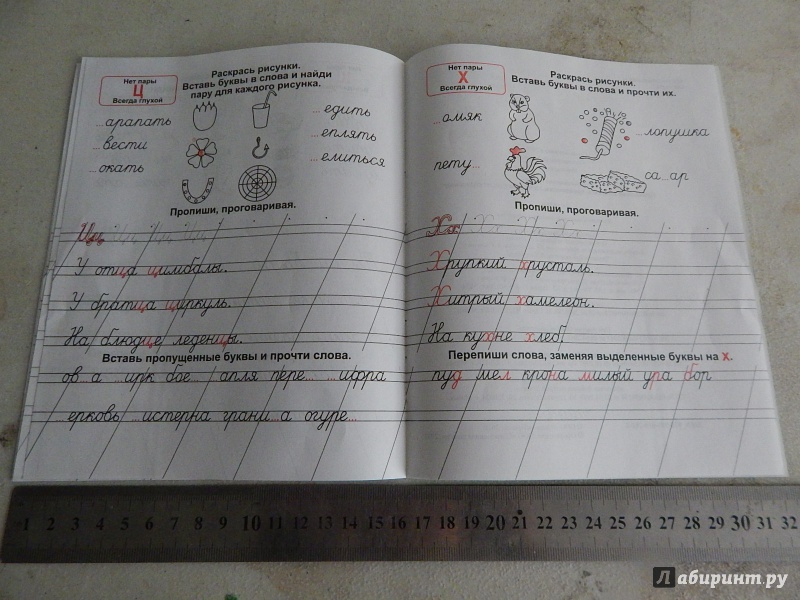 Нет пары
Ц
Всегда глухой
Раскрась рисунки.
Вставь буквы в слова и найди
пару для каждого рисунка.
...арапать
...вести
...окать
...едить
...еплять
...елиться
Пропиши, проговаривая.
Цц Цц Цц Цц
У отца цимбалы.
У братца циркуль.
На блюдце леденцы.
Вставь пропущенные буквы и прочти слова.
ов...а ...ирк бое... ...апля пере... ...ифра
...ерковь ...истерна грани...а огуре...
Нет пары
Х
Всегда глухой
Раскрась рисунки.
Вставь буквы в слова и прочти их.
...омяк
...лопушка
пету...
са...ар
Пропиши, проговаривая.
Хх Хх Хх Хх
Хрупкий хрусталь.
Хитрый хамелеон.
На кухне хлеб.
Перепиши слова, заменяя выделенные буквы на Х.
пуд мел крона милый ура бор
1 2 3 4 5 6 7 8 9 10 11 12 13 14 15 16 17 18 19 20 21 22 23 24 25 26 27 28 29 30 31 32
Лабиринт.ру